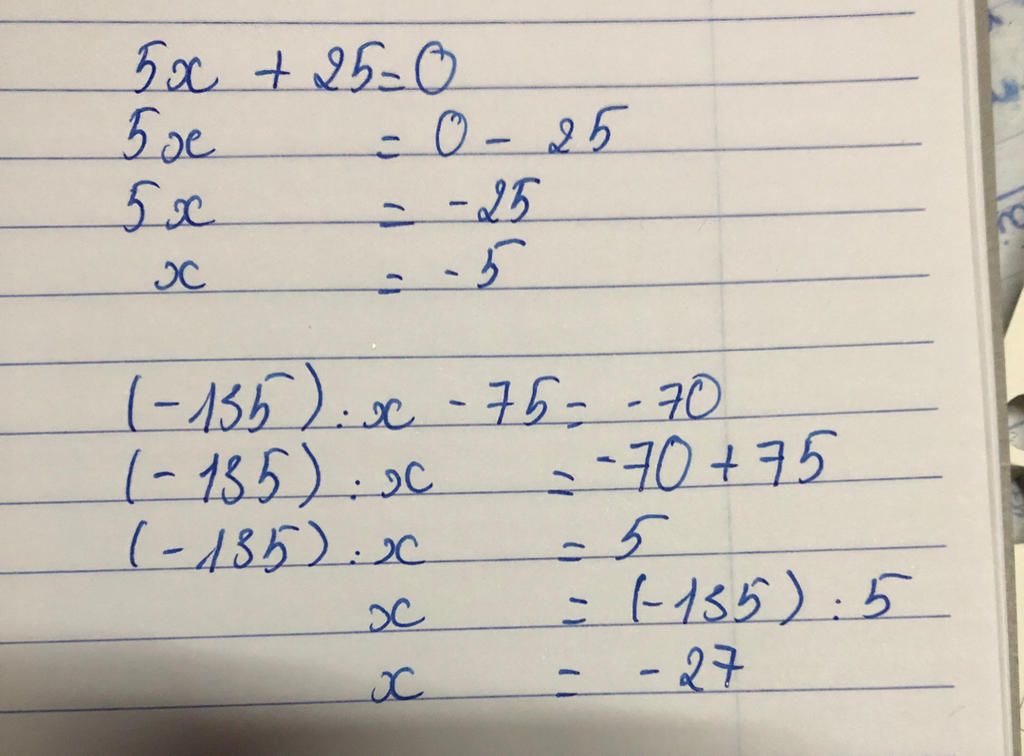 5x + 25 = 0
5x = 0 - 25
5x = -25
x = -5
(-135) : x - 75 = -70
(-135) : x = -70 + 75
(-135) : x = 5
x = (-135) : 5
x = -27